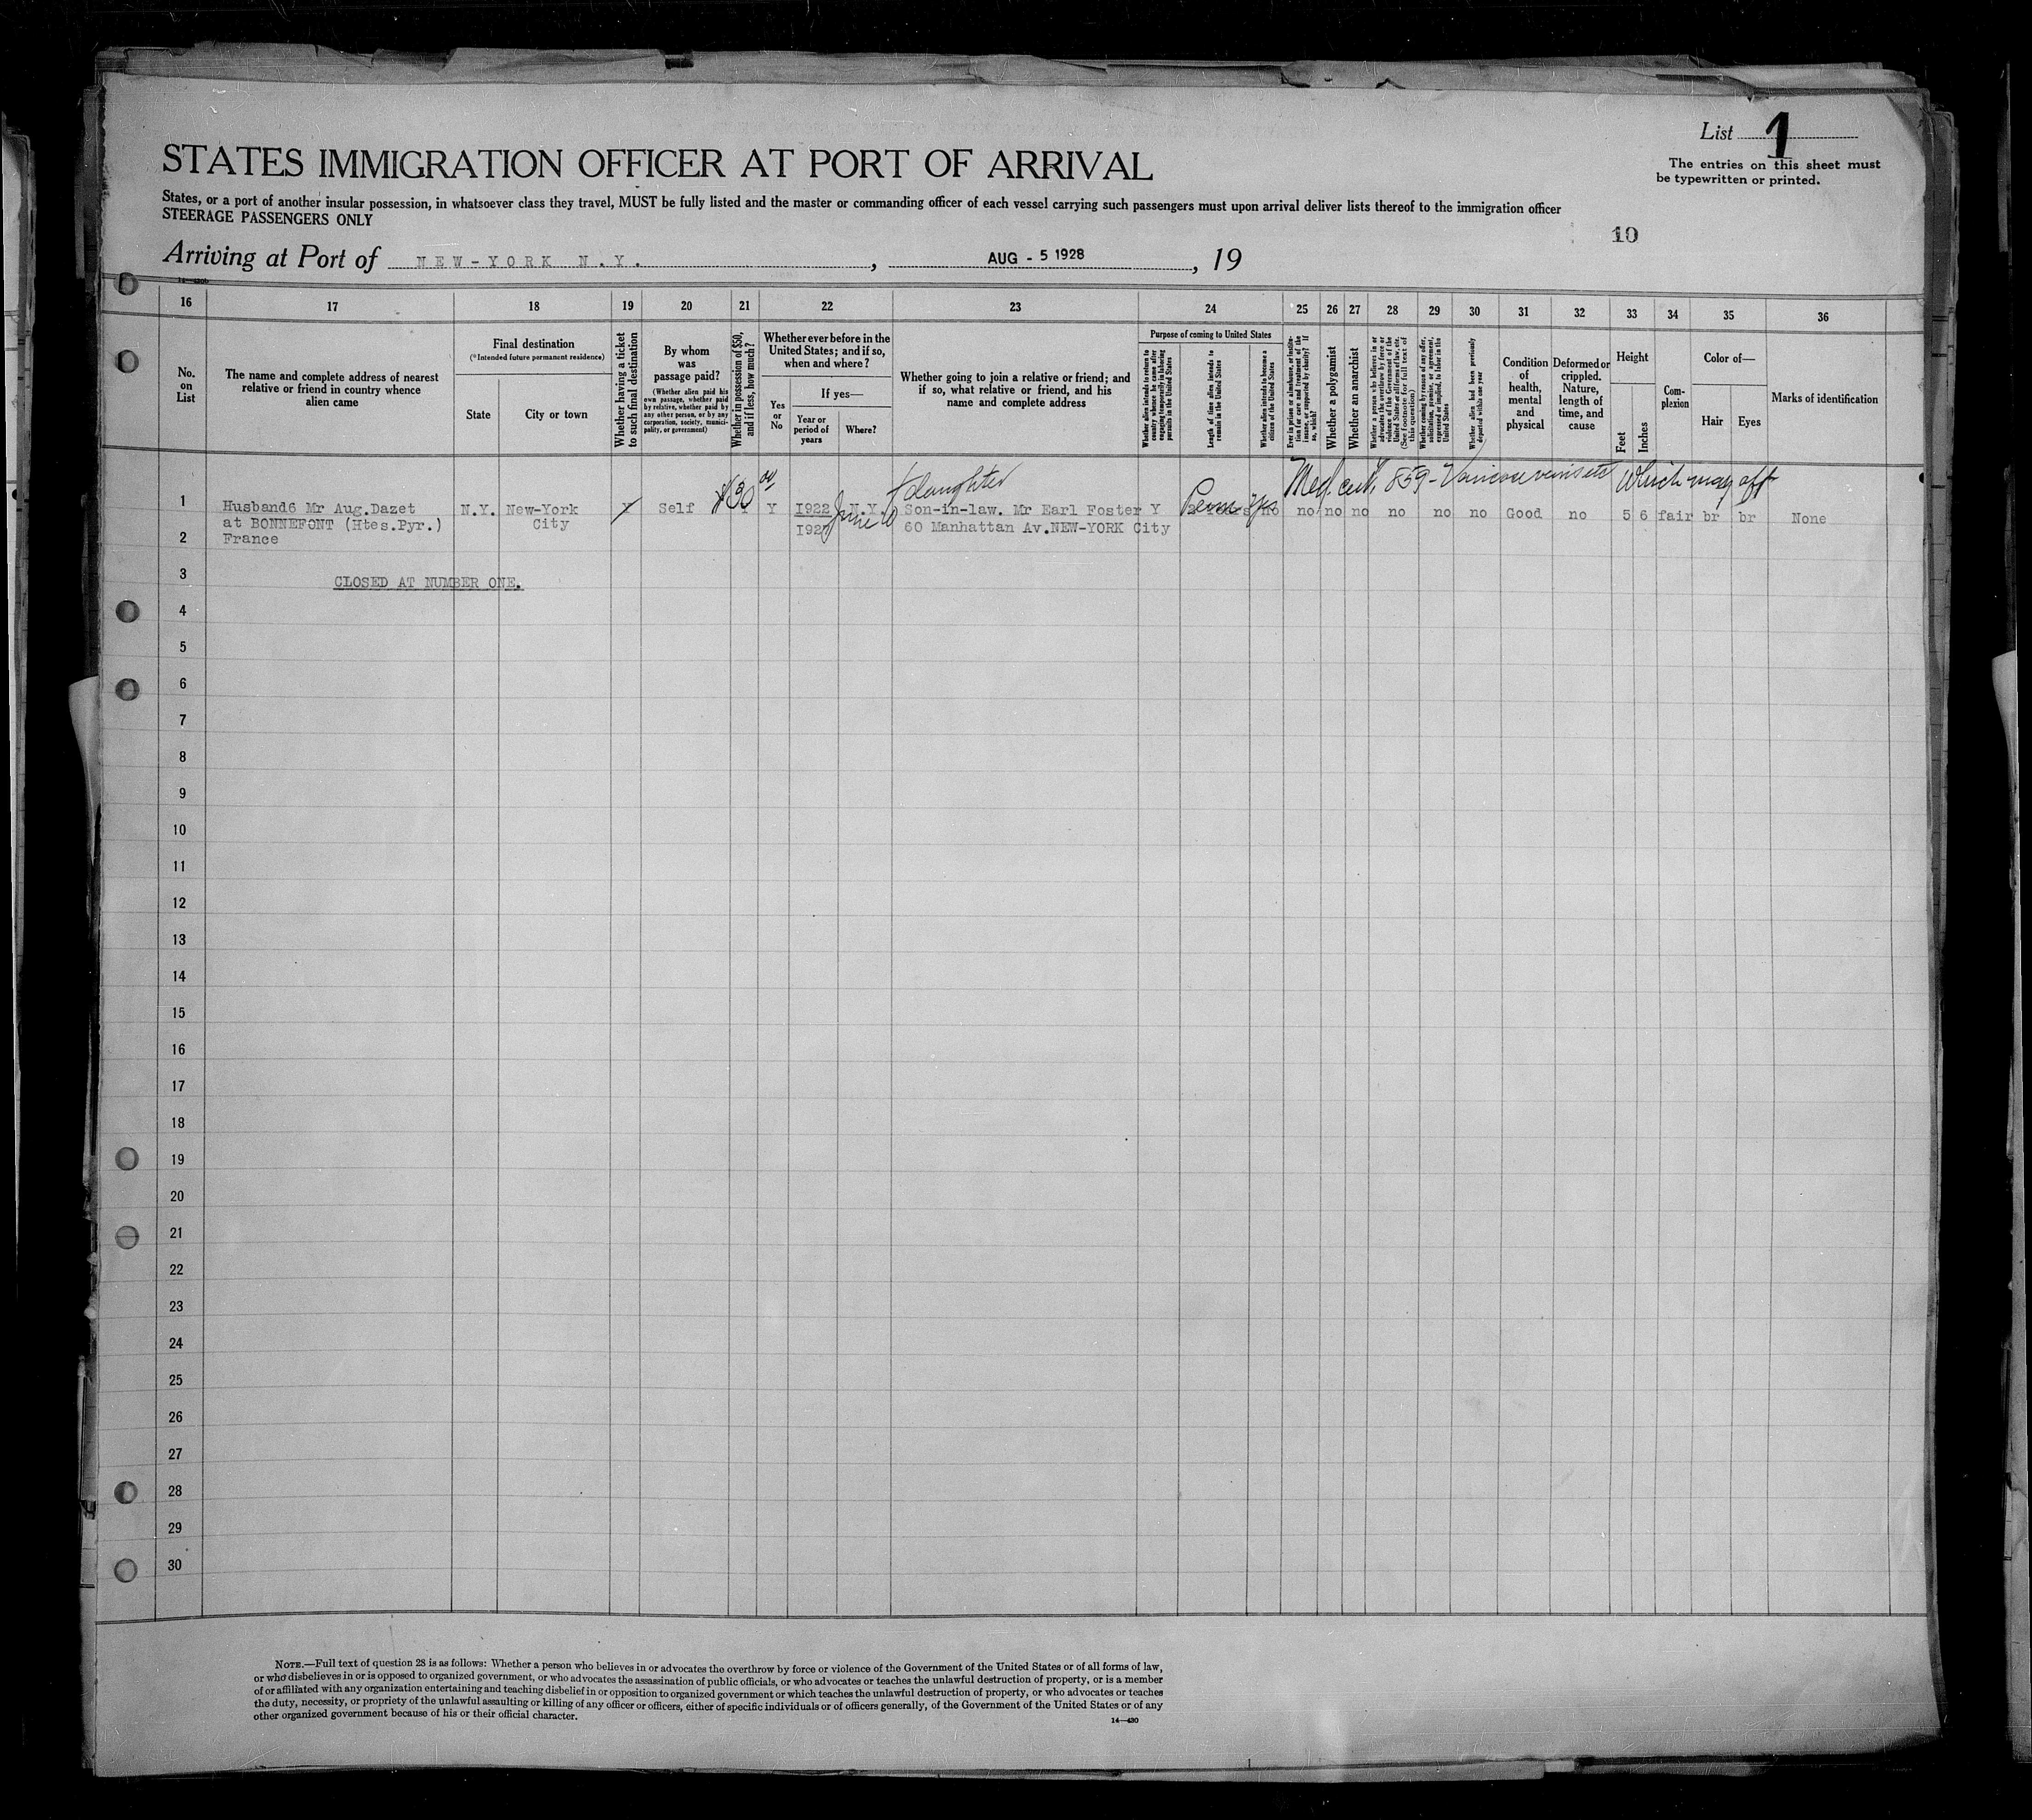 List 1
The entries on this sheet must
be typewritten or printed.
STATES IMMIGRATION OFFICER AT PORT OF ARRIVAL
States, or a port of another insular possession, in whatsoever class they travel, MUST be fully listed and the master or commanding officer of each vessel carrying such passengers must upon arrival deliver lists thereof to the immigration officer
STEERAGE PASSENGERS ONLY
10
Arriving at Port of NEW-YORK N.Y. , AUG - 5 1928 , 19
16 17 18 19 20 21 22 23 24 25 26 27 28 29 30 31 32 33 34 35 36
No.
on
List
The name and complete address of nearest
relative or friend in country whence
alien came
Final destination
(*Intended future permanent residence)
State
City or town
Whether having a ticket
to such final destination
By whom
was
passage paid?
(Whether alien paid his
own passage, whether paid
by relative, whether paid by
any other person, or by any
corporation, society, munici-
pality, or government)
Whether in possession of $50,
and if less, how much?
Whether ever before in the
United States; and if so,
when and where?
Yes
or
No
If yes—
Year or
period of
years
Where?
Whether going to join a relative or friend; and
if so, what relative or friend, and his
name and complete address
Purpose of coming to United States
Whether alien intends to return to
country whence he came after
engaging temporarily in laboring
pursuits in the United States
Length of time alien intends to
remain in the United States
Whether alien intends to become a
citizen of the United States
Ever in prison or almshouse, or institu-
tion for care and treatment of the
insane, or supported by charity? If
so, which?
Whether a polygamist
Whether an anarchist
Whether a person who believes in or
advocates the overthrow by force or
violence of the Government of the
United States or all forms of law, etc.
(See footnote for full text of
this question)
Whether coming by reason of any offer,
solicitation, promise, or agreement,
expressed or implied, to labor in the
United States
Whether alien had been previously
deported within one year
Condition
of
health,
mental
and
physical
Deformed or
crippled.
Nature,
length of
time, and
cause
Height
Feet
Inches
Com-
plexion
Color of—
Hair
Eyes
Marks of identification
$30 daughter Med. cert. 859 - Varicose veins etc which may aff
1 Husband6 Mr Aug.Dazet N.Y. New-York Y Self Y Y 1922 N.Y. Son-in-law. Mr Earl Foster Y Perm yes no no no no no no no Good no 5 6 fair br br None
at BONNEFONT (Htes.Pyr.) City 192 June 60 Manhattan Av.NEW-YORK City
2 France
3 CLOSED AT NUMBER ONE.
4
5
6
7
8
9
10
11
12
13
14
15
16
17
18
19
20
21
22
23
24
25
26
27
28
29
30
NOTE.—Full text of question 28 is as follows: Whether a person who believes in or advocates the overthrow by force or violence of the Government of the United States or of all forms of law,
or who disbelieves in or is opposed to organized government, or who advocates the assassination of public officials, or who advocates or teaches the unlawful destruction of property, or is a member
of or affiliated with any organization entertaining and teaching disbelief in or opposition to organized government or which teaches the unlawful destruction of property, or who advocates or teaches
the duty, necessity, or propriety of the unlawful assaulting or killing of any officer or officers, either of specific individuals or of officers generally, of the Government of the United States or of any
other organized government because of his or their official character.
14—430